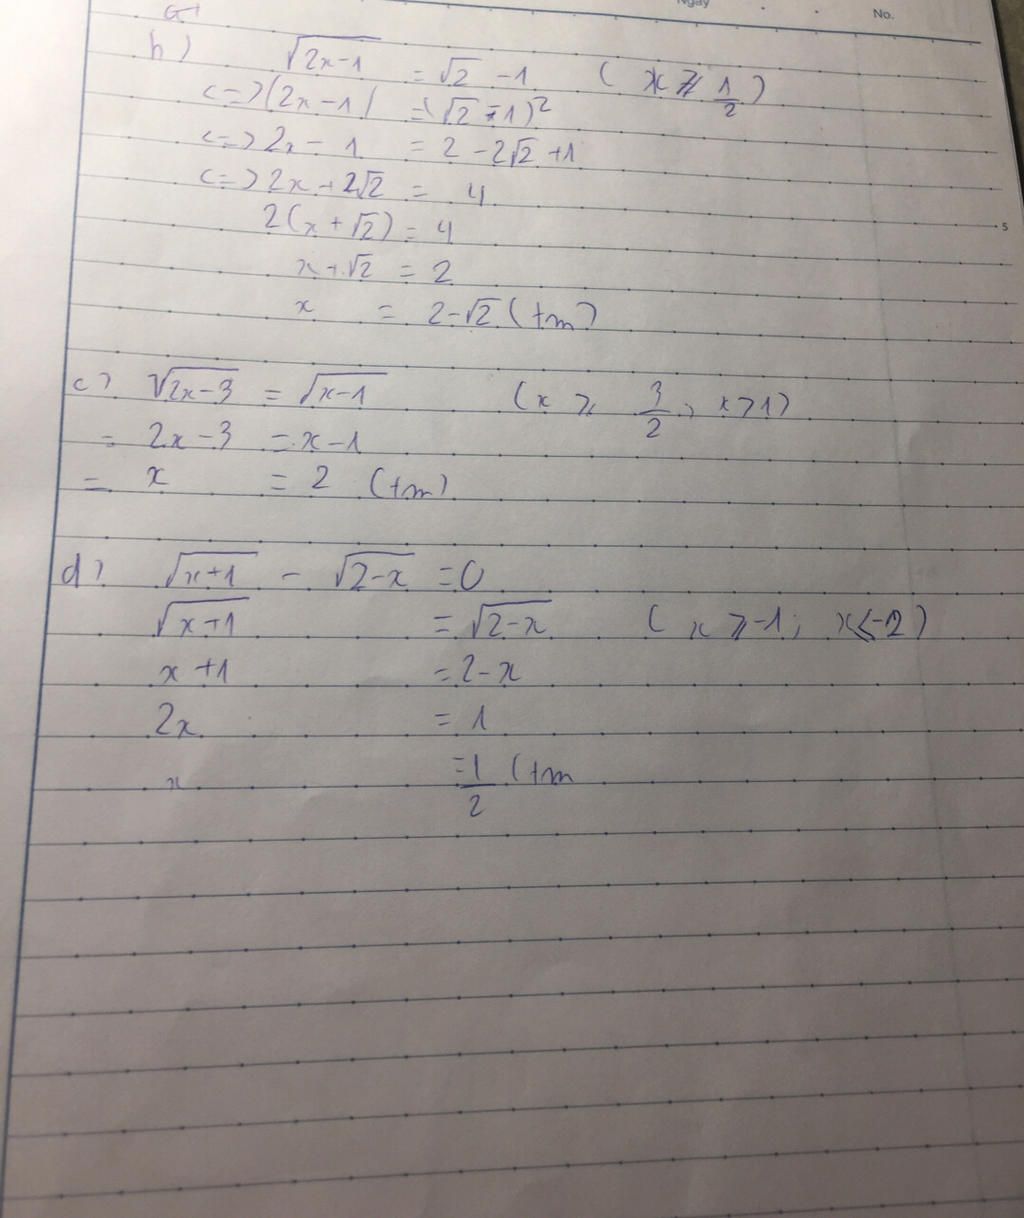 Ngày
No.
b) √(2x-1) = √2 -1 ( x ⩾ 1/2 )
<=> (2x-1) = (√2-1)²
<=> 2x - 1 = 2 - 2√2 + 1
<=> 2x + 2√2 = 4
5
2(x + √2) = 4
x + √2 = 2
x = 2-√2 (tm)
c) √(2x-3) = √(x-1) (x ⩾ 3/2 ; x ⩾ 1)
= 2x-3 = x-1
= x = 2 (tm)
d) √(x+1) - √(2-x) = 0
√(x+1) = √(2-x) ( x ⩾ -1; x ⩽ 2)
x +1 = 2-x
2x = 1
x = 1/2 (tm